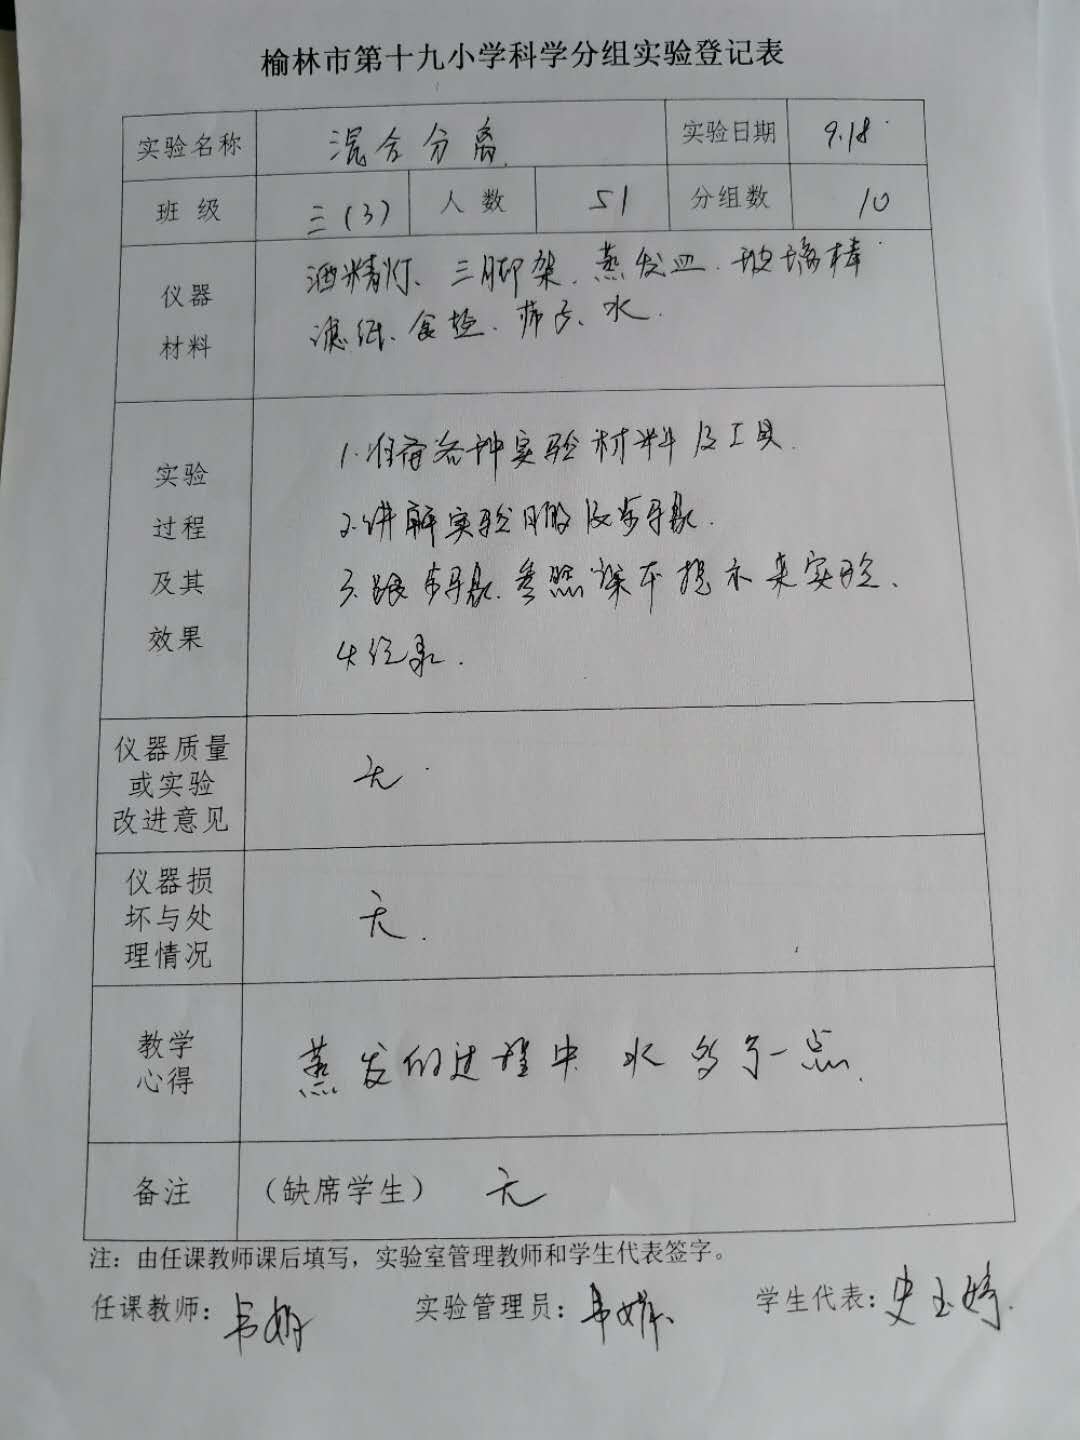 榆林市第十九小学科学分组实验登记表
实验名称 混合分离 实验日期 9.18
班级 三(3) 人数 51 分组数 10
仪器
材料
酒精灯、三脚架、蒸发皿、玻璃棒
滤纸、食盐、筛子、水.
实验
过程
及其
效果
1.准备各种实验材料及工具.
2.讲解实验目的及步骤.
3.跟步骤.参照课本提示来实验.
4.记录.
仪器质量
或实验
改进意见
无.
仪器损
坏与处
理情况
无.
教学
心得
蒸发的过程中水多了一点.
备注 (缺席学生) 无
注：由任课教师课后填写，实验室管理教师和学生代表签字。
任课教师： 实验管理员： 学生代表：史玉婷.